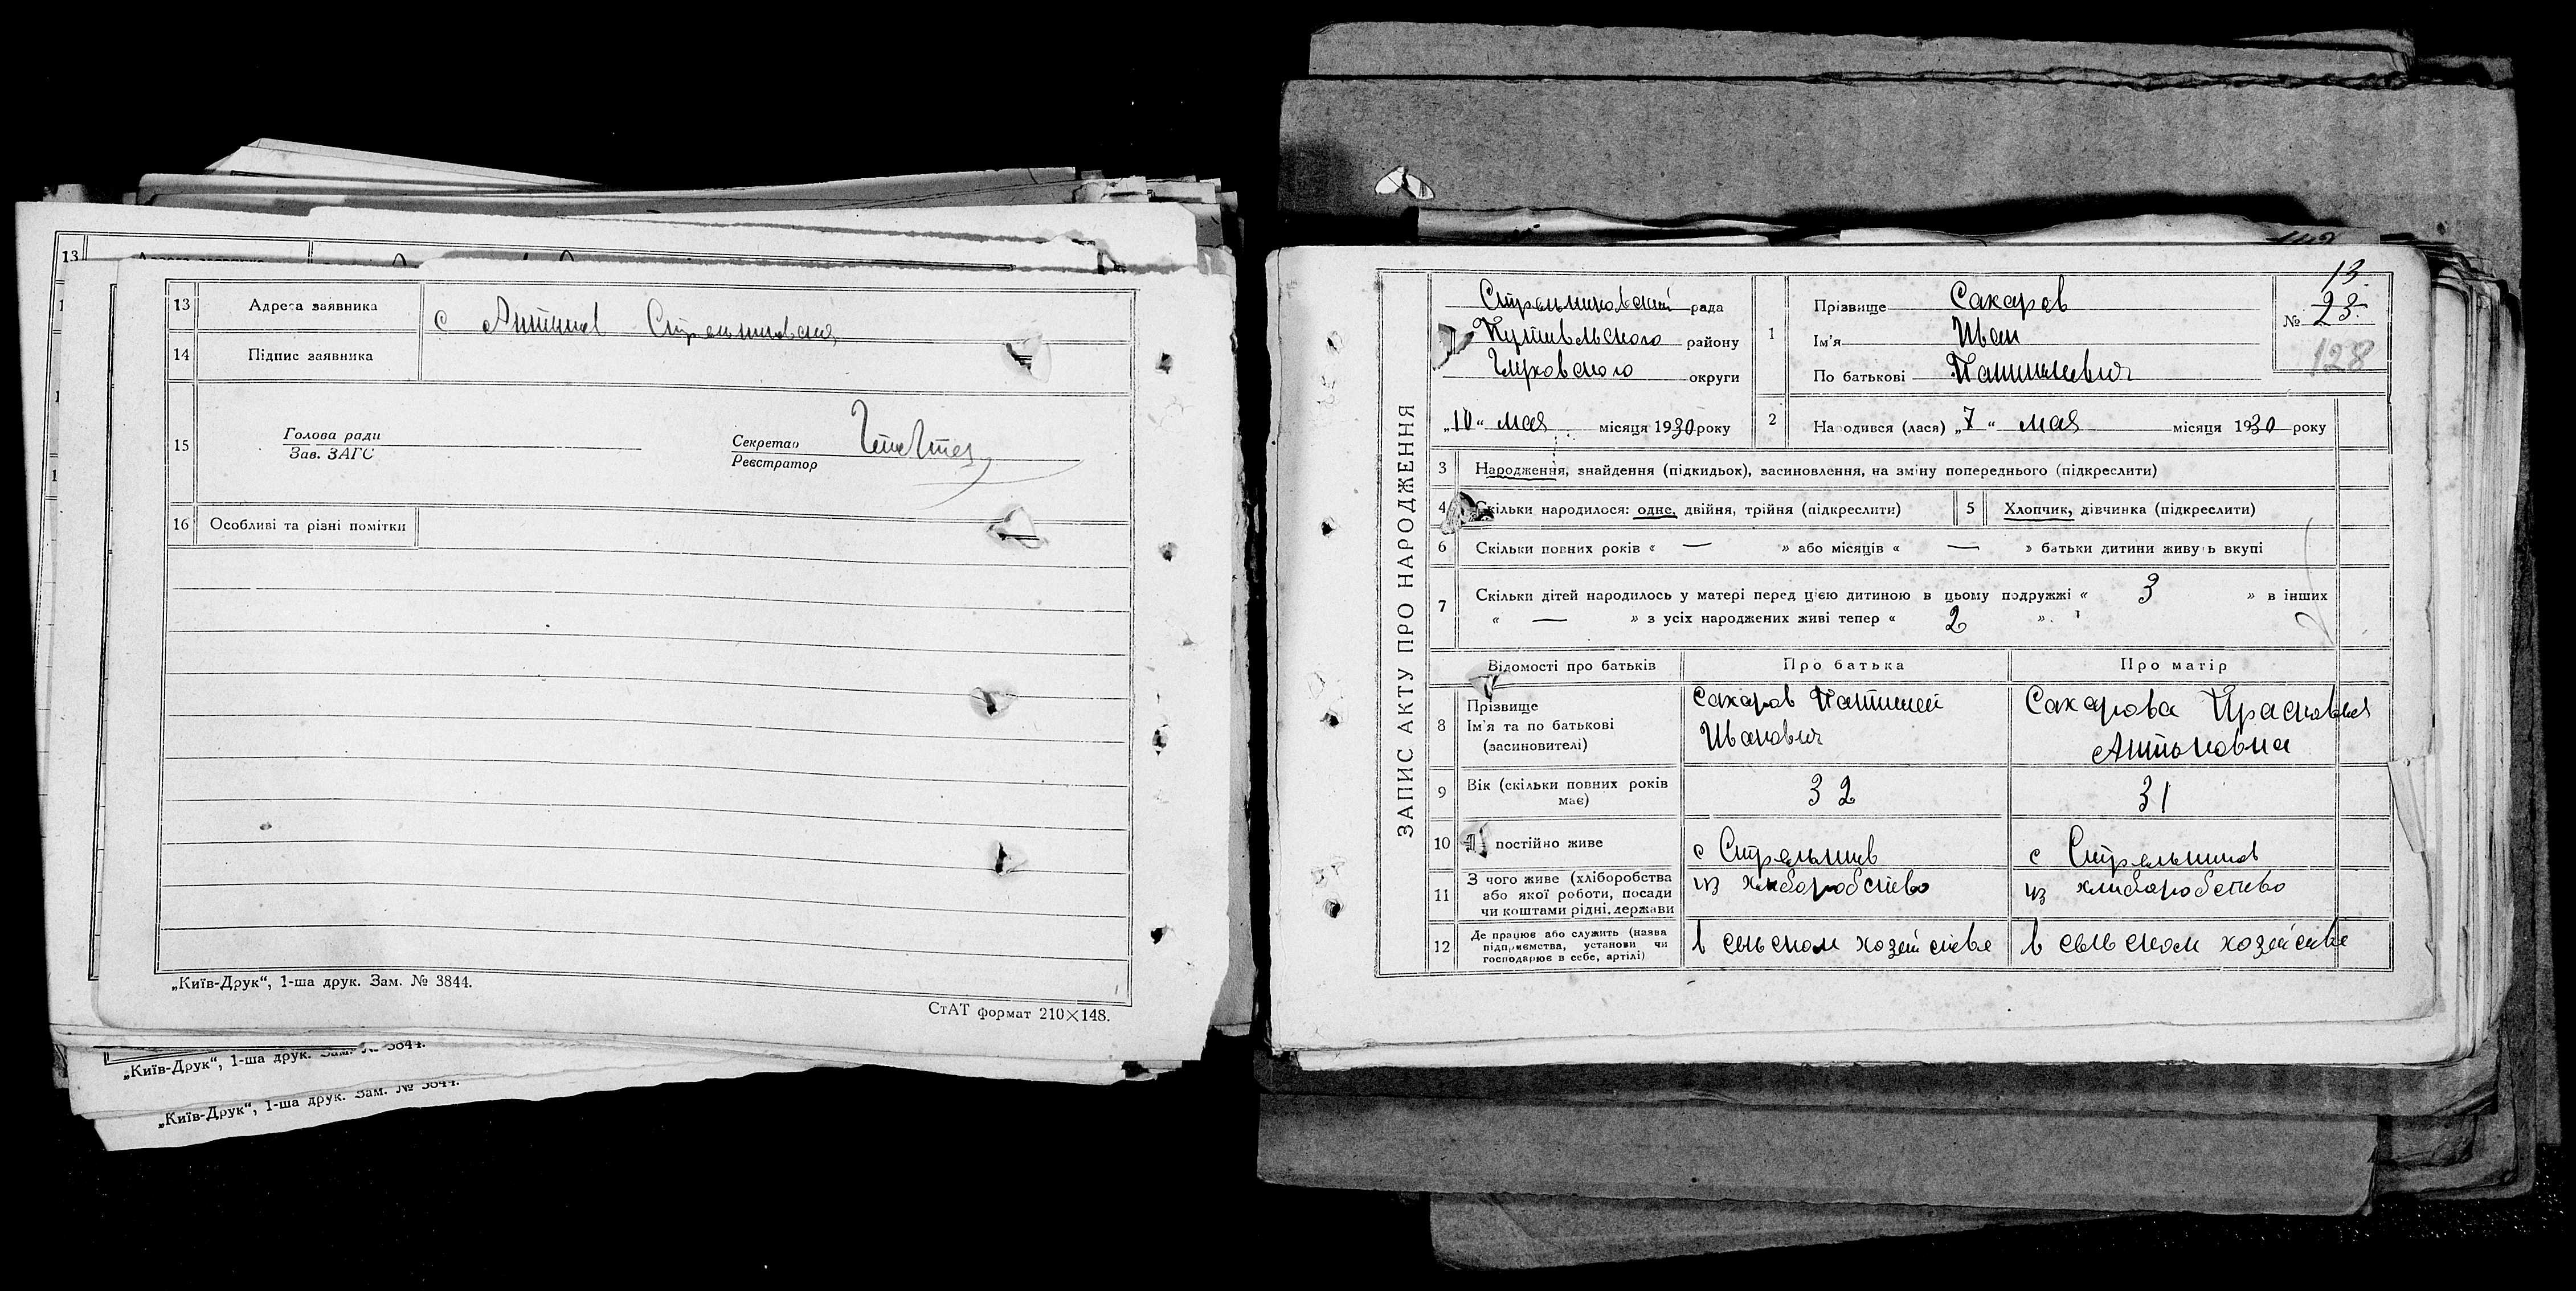 13
13 Адреса заявника
с
14 Підпис заявника
15 Голова ради
Зав. ЗАГС
Секретар
Реєстратор
16 Особливі та різні помітки
„Київ-Друк“, 1-ша друк. Зам. № 3844.
СтАТ формат 210×148.
„Київ-Друк“, 1-ша друк. Зам. № 3844.
„Київ-Друк“, 1-ша друк. Зам. № 3844.
ЗАПИС АКТУ ПРО НАРОДЖЕННЯ
рада
Путивльского району
округи
„10“ мая місяця 1930 року
1 Прізвище Сахаров
Ім'я Иван
По батькові
13
№ 23
128
2 Народився (лася) „7“ мая місяця 1930 року
3 Народження, знайдення (підкидьок), засиновлення, на зміну попереднього (підкреслити)
4 Скільки народилося: одне, двійня, трійня (підкреслити)
5 Хлопчик, дівчинка (підкреслити)
6 Скільки повних років « — » або місяців « — » батьки дитини живуть вкупі
7 Скільки дітей народилось у матері перед цією дитиною в цьому подружжі « 3 » в інших
« — » з усіх народжених живі тепер « 2 ».
Відомості про батьків
Про батька
Про матір
8 Прізвище
Ім'я та по батькові
(засиновителі)
Сахаров
Иванович
Сахарова Прасковья
Антоновна
9 Вік (скільки повних років
має)
32
31
10 постійно живе
с
с
11 З чого живе (хліборобства
або якої роботи, посади
чи коштами рідні, держави
из хлиборобство
из хлиборобство
12 Де працює або служить (назва
підприємства, установи чи
господарює в себе, артілі)
в сельском хозяйстве
в сельском хозяйстве